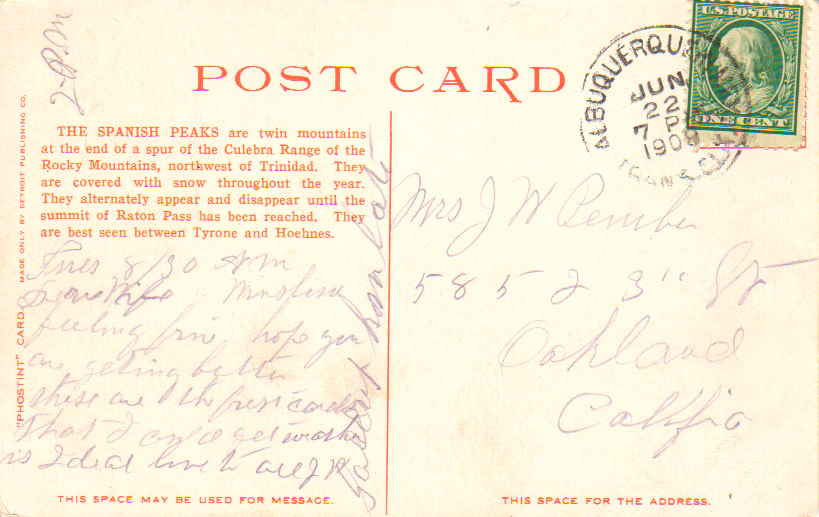 POST CARD
THE SPANISH PEAKS are twin mountains
at the end of a spur of the Culebra Range of the
Rocky Mountains, northwest of Trinidad. They
are covered with snow throughout the year.
They alternately appear and disappear until the
summit of Raton Pass has been reached. They
are best seen between Tyrone and Hoehnes.
"PHOSTINT" CARD
MADE ONLY BY DETROIT PUBLISHING CO.
U.S. POSTAGE
ONE CENT
ALBUQUERQUE
JUN
22
7 P
1909
Tues 8/30 AM
Dear Wife
feeling fine hope you
are geting better
these are the first cards
That I could get weather
is Ideal love to all J W
train late
Mrs J W Pember
585 23" St
Oakland
Califio
THIS SPACE MAY BE USED FOR MESSAGE.
THIS SPACE FOR THE ADDRESS.